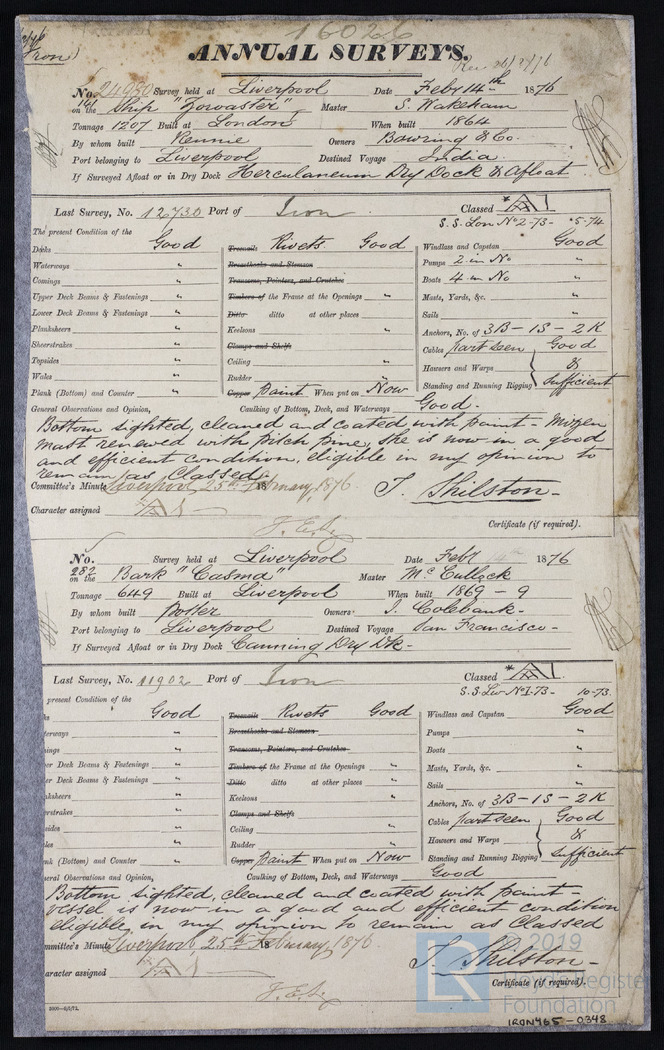 16026
Iron
ANNUAL SURVEYS.
Rec 26/2/76
No. 24930 Survey held at Liverpool Date Feby 14th 1876
141 on the Ship "Zoroaster" Master S. Wakeham
Tonnage 1207 Built at London When built 1864
By whom built Rennie Owners Bowring & Co.
Port belonging to Liverpool Destined Voyage India
If Surveyed Afloat or in Dry Dock Herculaneum Dry Dock & Afloat
Last Survey, No. 12730 Port of Iron Classed * A 1
S.S. Lon No 2-73- 5-74
The present Condition of the
Decks Good Treenails Rivets Good Windlass and Capstan Good
Waterways " Breasthooks and Stemson Pumps 2 in No "
Comings " Transoms, Pointers, and Crutches Boats 4 in No "
Upper Deck Beams & Fastenings " Timbers of the Frame at the Openings " Masts, Yards, &c. "
Lower Deck Beams & Fastenings " Ditto ditto at other places " Sails "
Planksheers " Keelsons " Anchors, No. of 3B - 1S - 2K
Sheerstrakes " Clamps and Shelfs Cables part seen Good
Topsides " Ceiling " Hawsers and Warps &
Wales " Rudder " Standing and Running Rigging Sufficient
Plank (Bottom) and Counter " Copper Paint When put on Now
General Observations and Opinion, Caulking of Bottom, Deck, and Waterways Good.
Bottom sighted, cleaned and coated with paint - Mizen
mast renewed with pitch pine, she is now in a good
and efficient condition, eligible in my opinion to
remain as Classed
Committee's Minute Liverpool, 25th February, 1876 18 T. Shilston -
Character assigned A 1
Certificate (if required).
No. Survey held at Liverpool Date Feby 14th 1876
282 on the Bark "Casma" Master McCullock
Tonnage 649 Built at Liverpool When built 1869 - 9
By whom built Potter Owners J. Colebank -
Port belonging to Liverpool Destined Voyage San Francisco -
If Surveyed Afloat or in Dry Dock Canning Dry Dk -
Last Survey, No. 11902 Port of Iron Classed * A 1
S.S. Liv No 1-73- 10-73
present Condition of the
ks Good Treenails Rivets Good Windlass and Capstan Good
terways " Breasthooks and Stemson Pumps "
ings " Transoms, Pointers, and Crutches Boats "
er Deck Beams & Fastenings " Timbers of the Frame at the Openings " Masts, Yards, &c. "
er Deck Beams & Fastenings " Ditto ditto at other places " Sails "
nksheers " Keelsons " Anchors, No. of 3B - 1S - 2K
erstrakes " Clamps and Shelfs Cables part seen Good
sides " Ceiling " Hawsers and Warps &
les " Rudder " Standing and Running Rigging Sufficient
nk (Bottom) and Counter " Copper Paint When put on Now
eral Observations and Opinion, Caulking of Bottom, Deck, and Waterways Good
Bottom sighted, cleaned and coated with paint -
vessel is now in a good and efficient condition
eligible in my opinion to remain as Classed
mmittee's Minute Liverpool, 25th February, 1876 18 T. Shilston -
aracter assigned A 1
Certificate (if required).
LR 2019
Lloyd's Register
Foundation
IRON465-0348